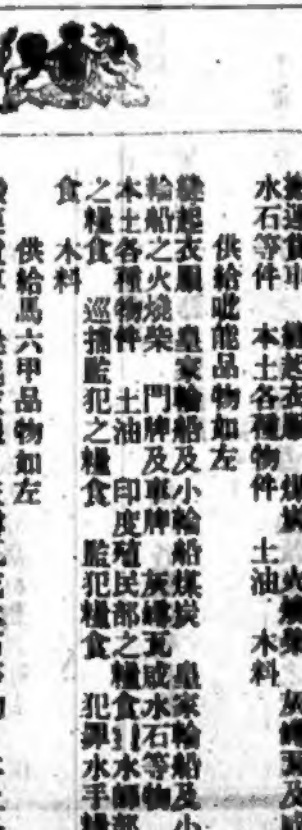 搬運貨車 縫起衣服 煤炭 火燒柴 灰磚瓦及
水石等件 本土各種物件 土油 木料
供給吡能品物如左
縫起衣服 皇家輪船及小輪船煤炭 皇家輪船及小
輪船之火燒柴 門牌及車牌 灰磚瓦或水石等物
本土各種物件 土油 印度殖民部之糧食 水師部
之糧食 巡捕監犯之糧食 監犯糧食 犯罪水手糧
食 木料
供給馬六甲品物如左